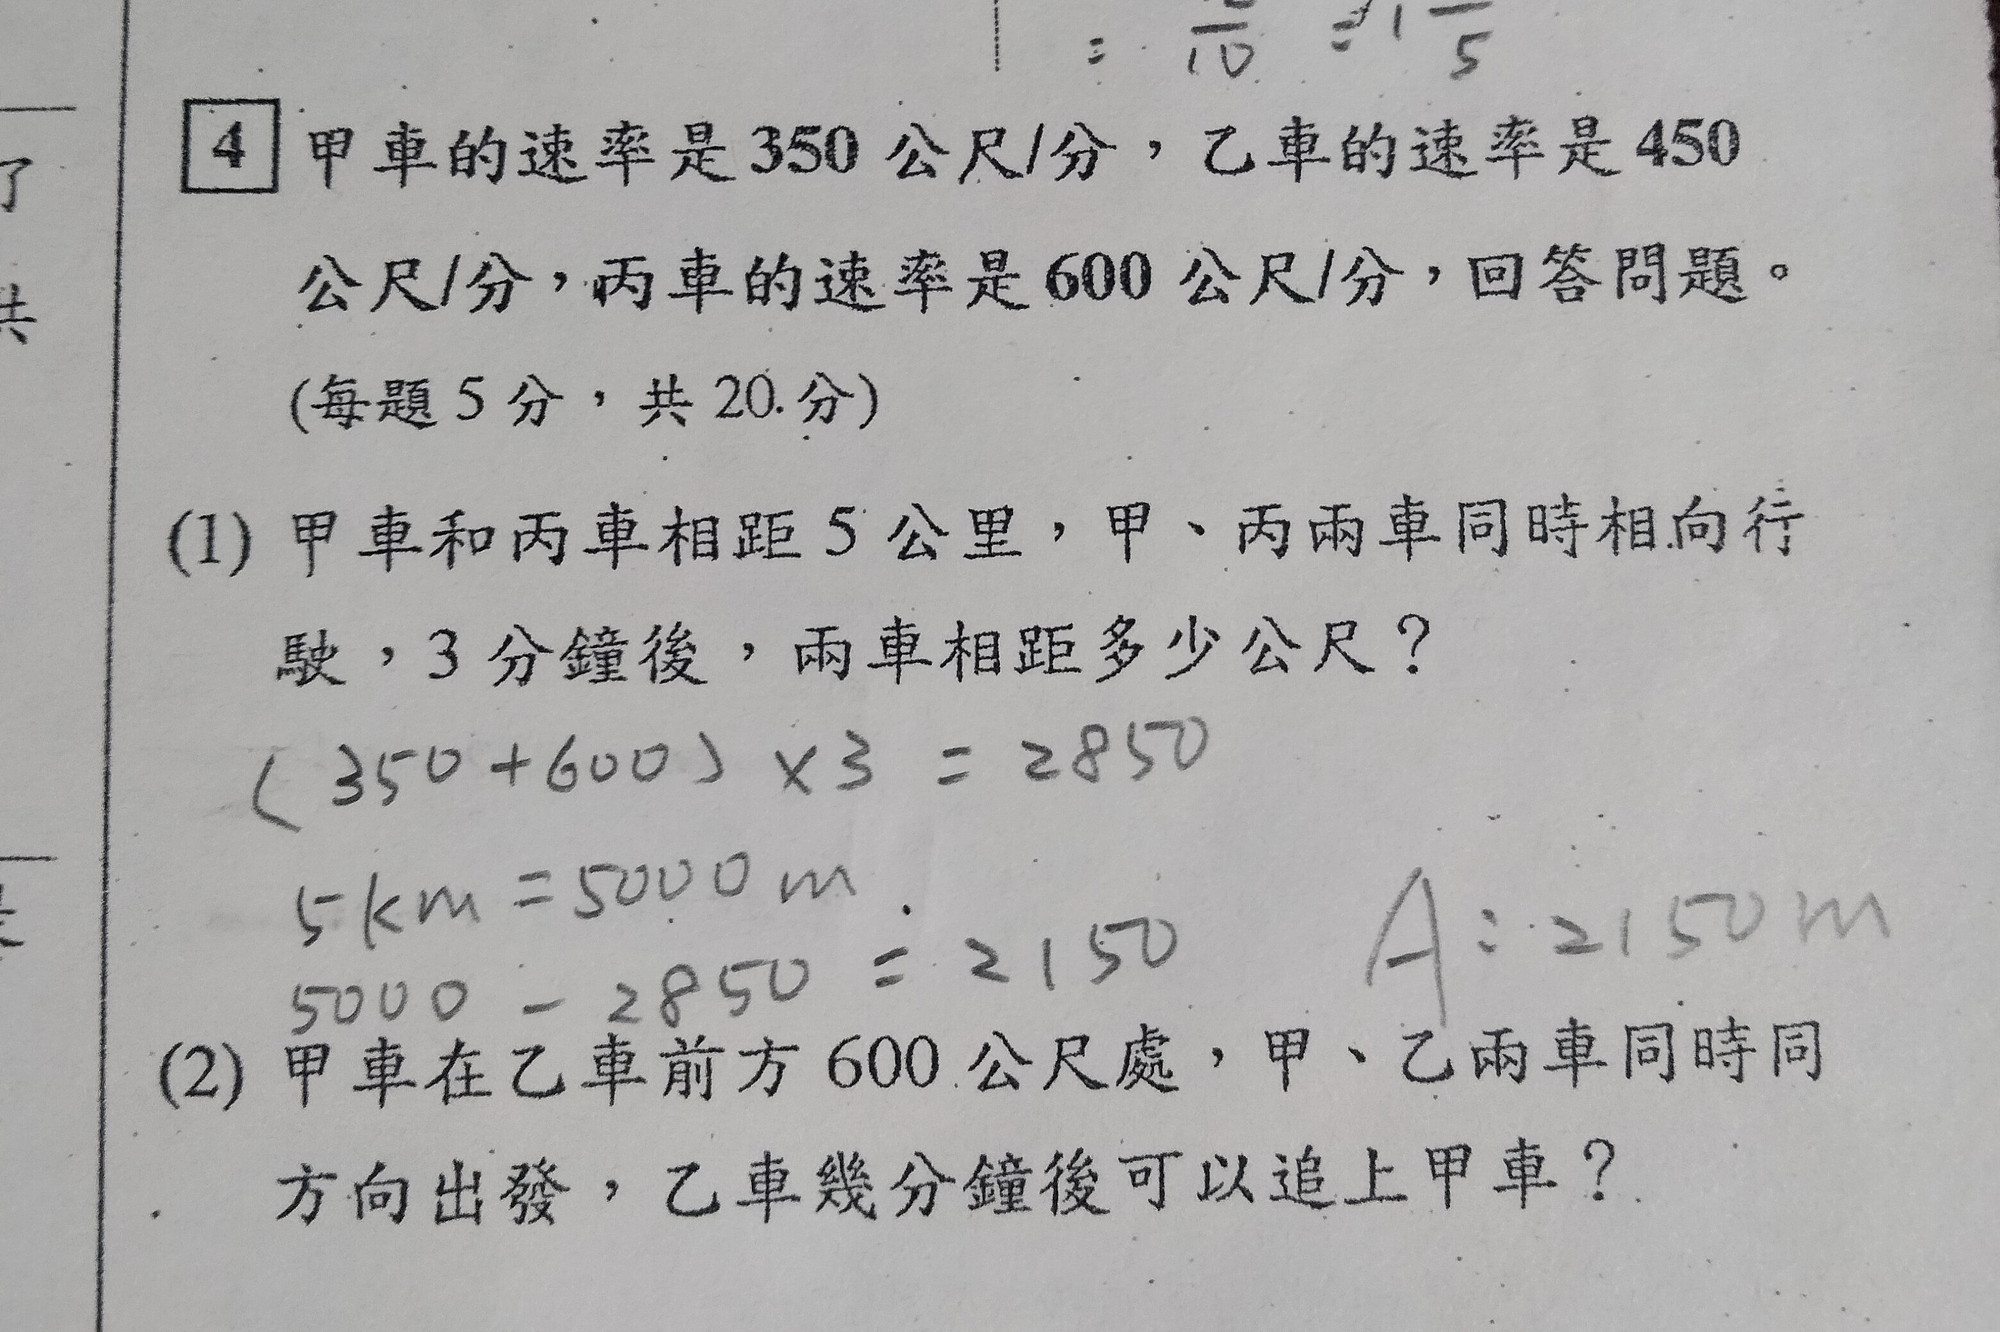 = /10 = 1 /5
4 甲車的速率是350公尺/分，乙車的速率是450
公尺/分，丙車的速率是600公尺/分，回答問題。
(每題5分，共20分)
(1) 甲車和丙車相距5公里，甲、丙兩車同時相向行
駛，3分鐘後，兩車相距多少公尺？
(350+600)×3=2850
5km=5000m
5000-2850=2150
A:2150m
(2) 甲車在乙車前方600公尺處，甲、乙兩車同時同
方向出發，乙車幾分鐘後可以追上甲車？
了
共